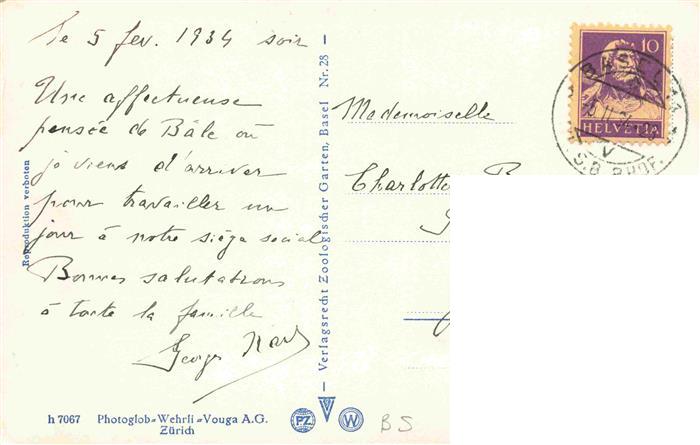 le 5 fev. 1934 soir
Une affectueuse
pensée de Bâle où
je viens d'arriver
pour travailler un
jour à notre siège social
Bonnes salutations
à toute la famille
Georges
Mademoiselle
Charlotte B
Reproduktion verboten
– Verlagsrecht Zoologischer Garten, Basel Nr. 28 –
h 7067 Photoglob-Wehrli-Vouga A.G.
Zürich
PZ
W
BS
10
HELVETIA
BASEL